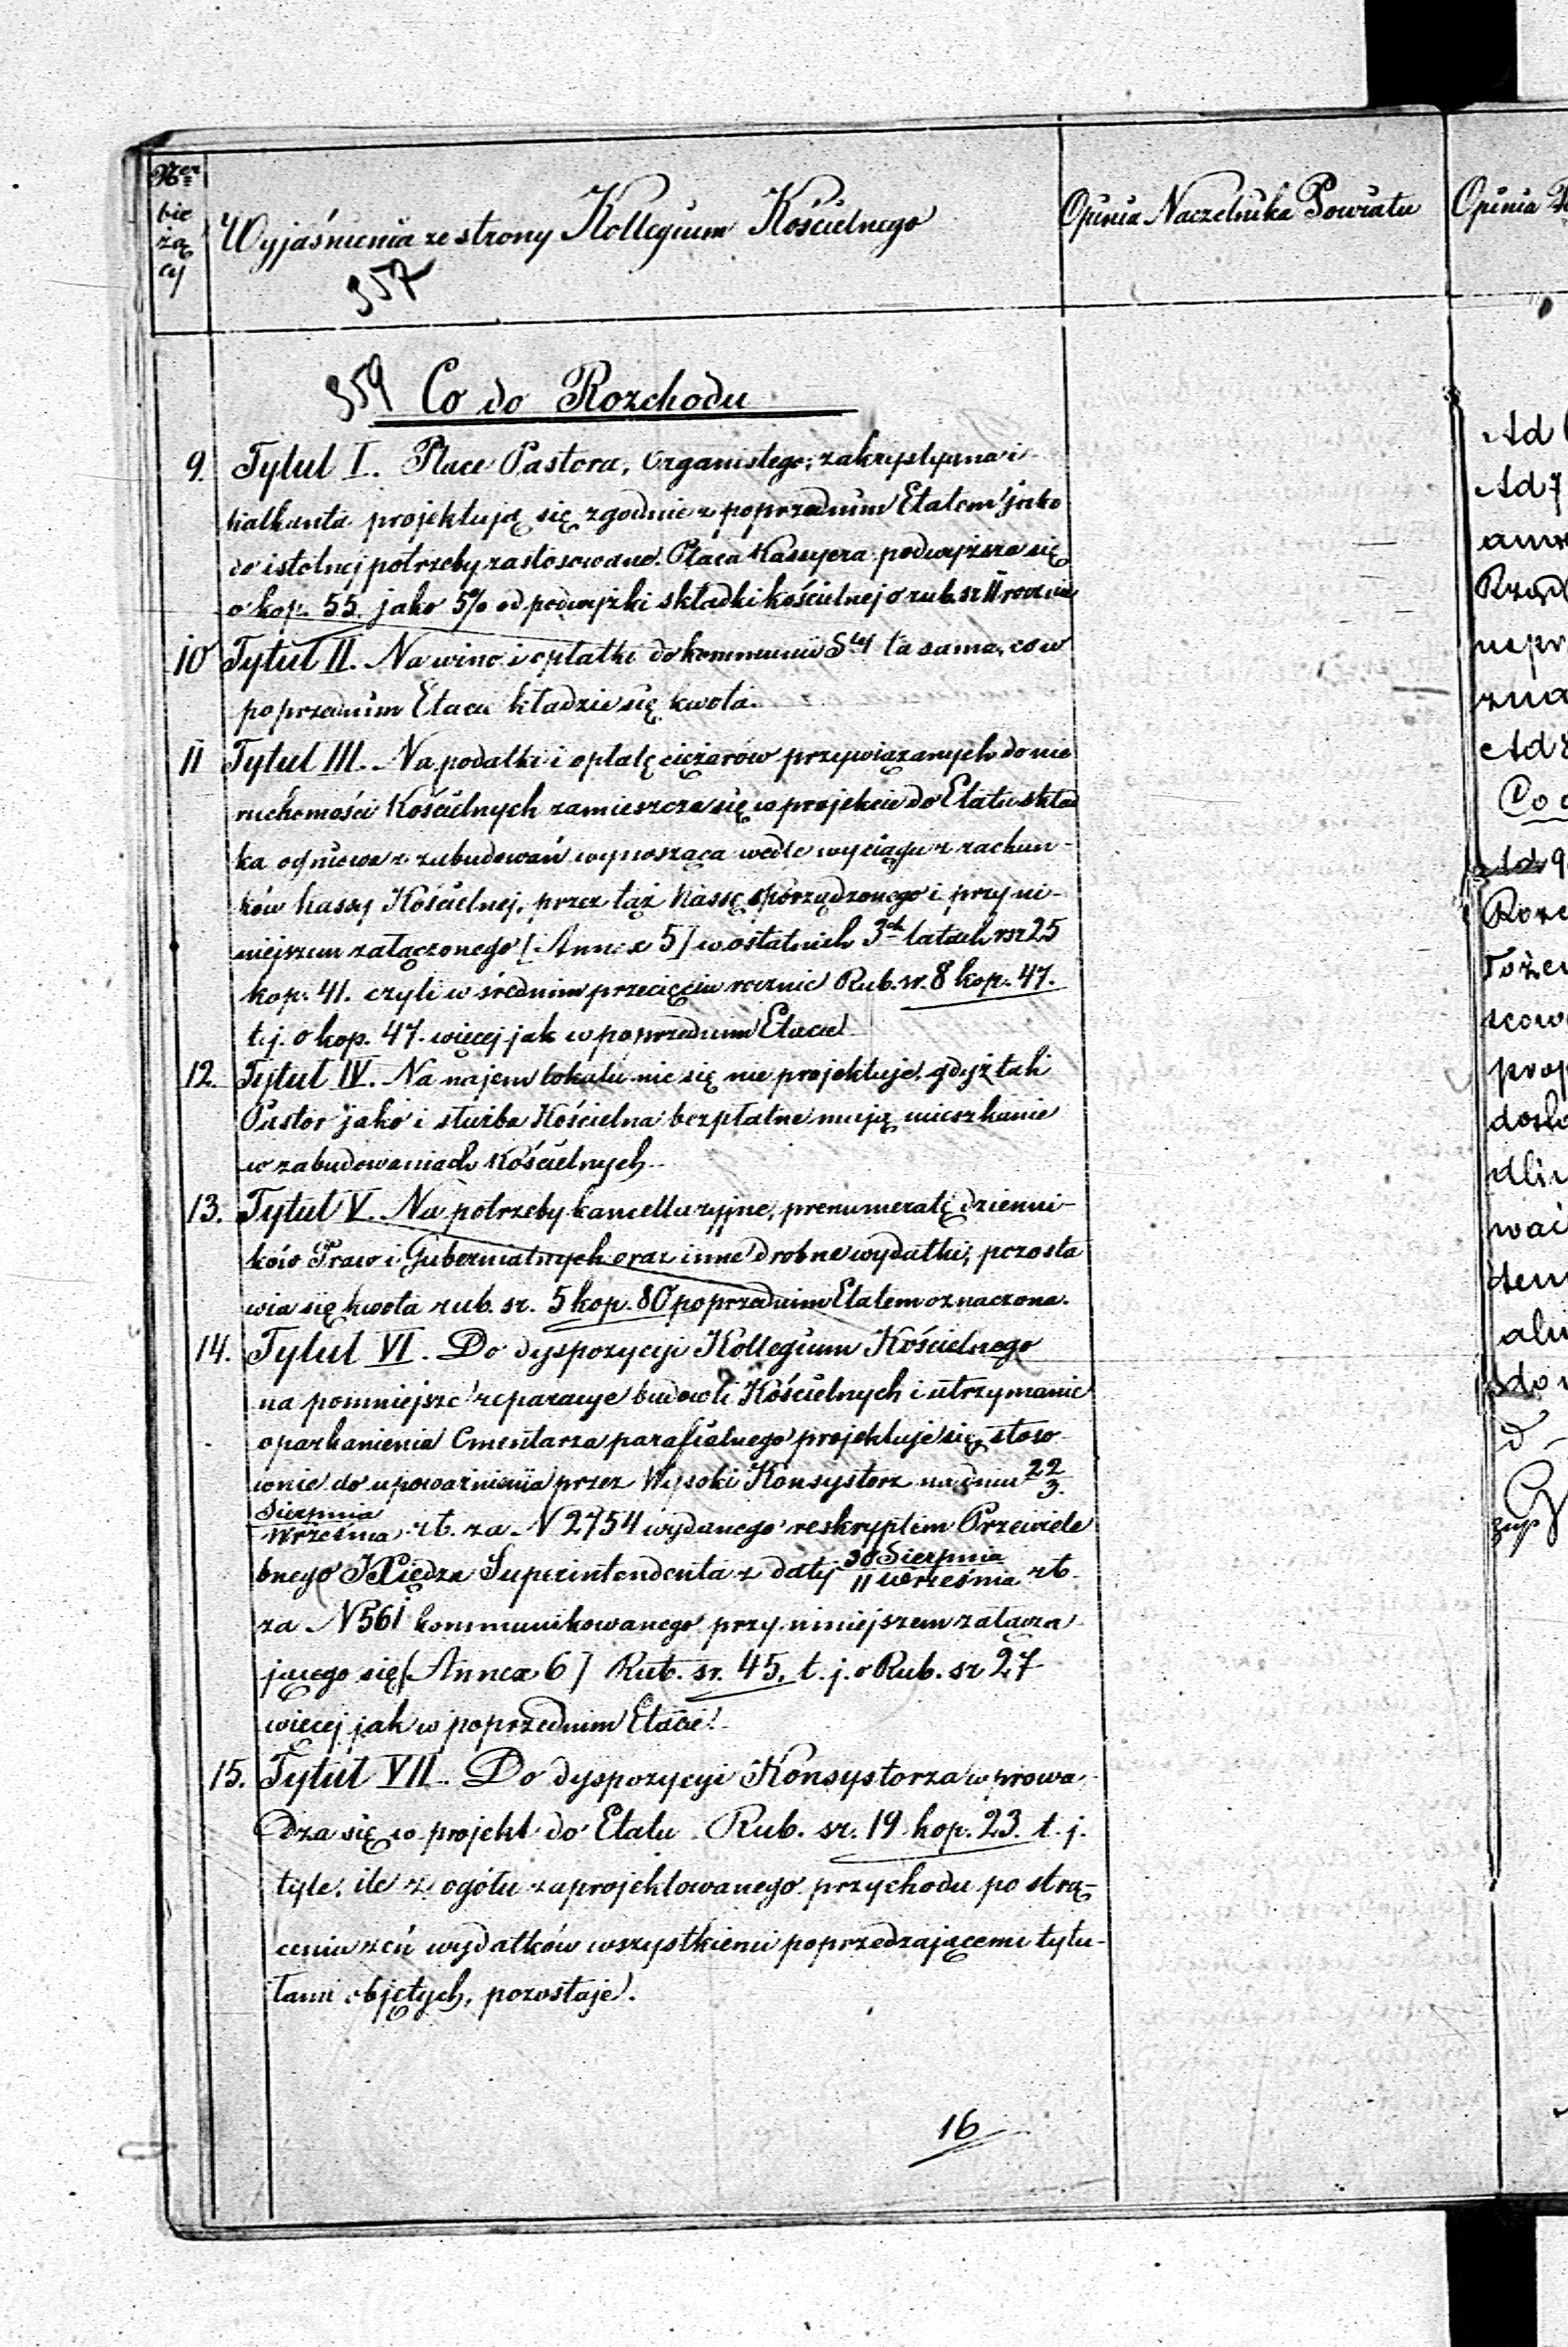 Ner
bie
żą
cy
Wyjaśnienia ze strony Kollegium Kościelnego
Opinia Naczelnika Powiatu
Opinia
357
359 Co do Rozchodu
9. Tytuł I. Płace Pastora, Organistego, zakrystyana i
kalkanta projektują się zgodnie z poprzednim Etatem jako
do istotnej potrzeby zastosowane. Płaca Kassyera podwyższa się
o kop. 55. jako 5% od podwyżki składki kościelnej o rub. sr 11 rocznie
10 Tytuł II. Na wino i opłatki do kommunii Stej ta sama, co w
poprzednim Etacie kładzie się kwota.
11 Tytuł III. Na podatki i opłatę ciężarów przywiązanych do nie
ruchomości Kościelnych zamieszcza się w projekcie do Etatu skład
ka ogniowa z zabudowań wynosząca wedle wyciągu z rachun-
ków kassy Kościelnej, przez taż Kassę sporządzonego i przy ni-
niejszem załączonego [Annex 5] w ostatnich 3ch latach rsr 25
kop. 41. czyli w średnim przecięciu rocznie Rub. sr. 8 kop. 47.
t.j. o kop. 47. więcej jak w poprzednim Etacie
12. Tytuł IV. Na najem lokalu nic się nie projektuje, gdyż tak
Pastor jako i służba Kościelna bezpłatne mają mieszkanie
w zabudowaniach Kościelnych.
13. Tytuł V. Na potrzeby kancellaryjne, prenumeratę dzienni-
ków Praw i Gubernialnych oraz inne drobne wydatki, pozosta
wia się kwota rub. sr. 5 kop. 80 poprzednim Etatem oznaczona.
14. Tytuł VI. Do dyspozycyi Kollegium Kościelnego
na pomniejsze reparacye budowli Kościelnych i utrzymanie
oparkanienia Cmentarza parafialnego projektuje się stoso-
wnie do upoważnienia przez Wysoki Konsystorz na dniu 22/3.
Sierpnia/Września rb. za N 2754 wydanego reskryptem Przewiele
bnego Xiędza Superintendenta z daty 30 Sierpnia/11 Września rb.
za N 561 kommunikowanego przy niniejszem załącza
jącego się [Annex 6] Rub. sr. 45, t. j. o Rub. sr 27
więcej jak w poprzednim Etacie.
15. Tytuł VII. Do dyspozycyi Konsystorza wprowa-
dza się w projekt do Etatu Rub. sr. 19 kop. 23. t. j.
tyle, ile z ogółu zaprojektowanego przychodu po strą-
ceniu zeń wydatków wszystkiemi poprzedzającemi tytu-
łami objętych, pozostaje.
16
Ad
Ad 7
Rząd
Ad 8
Co d
Ad 9